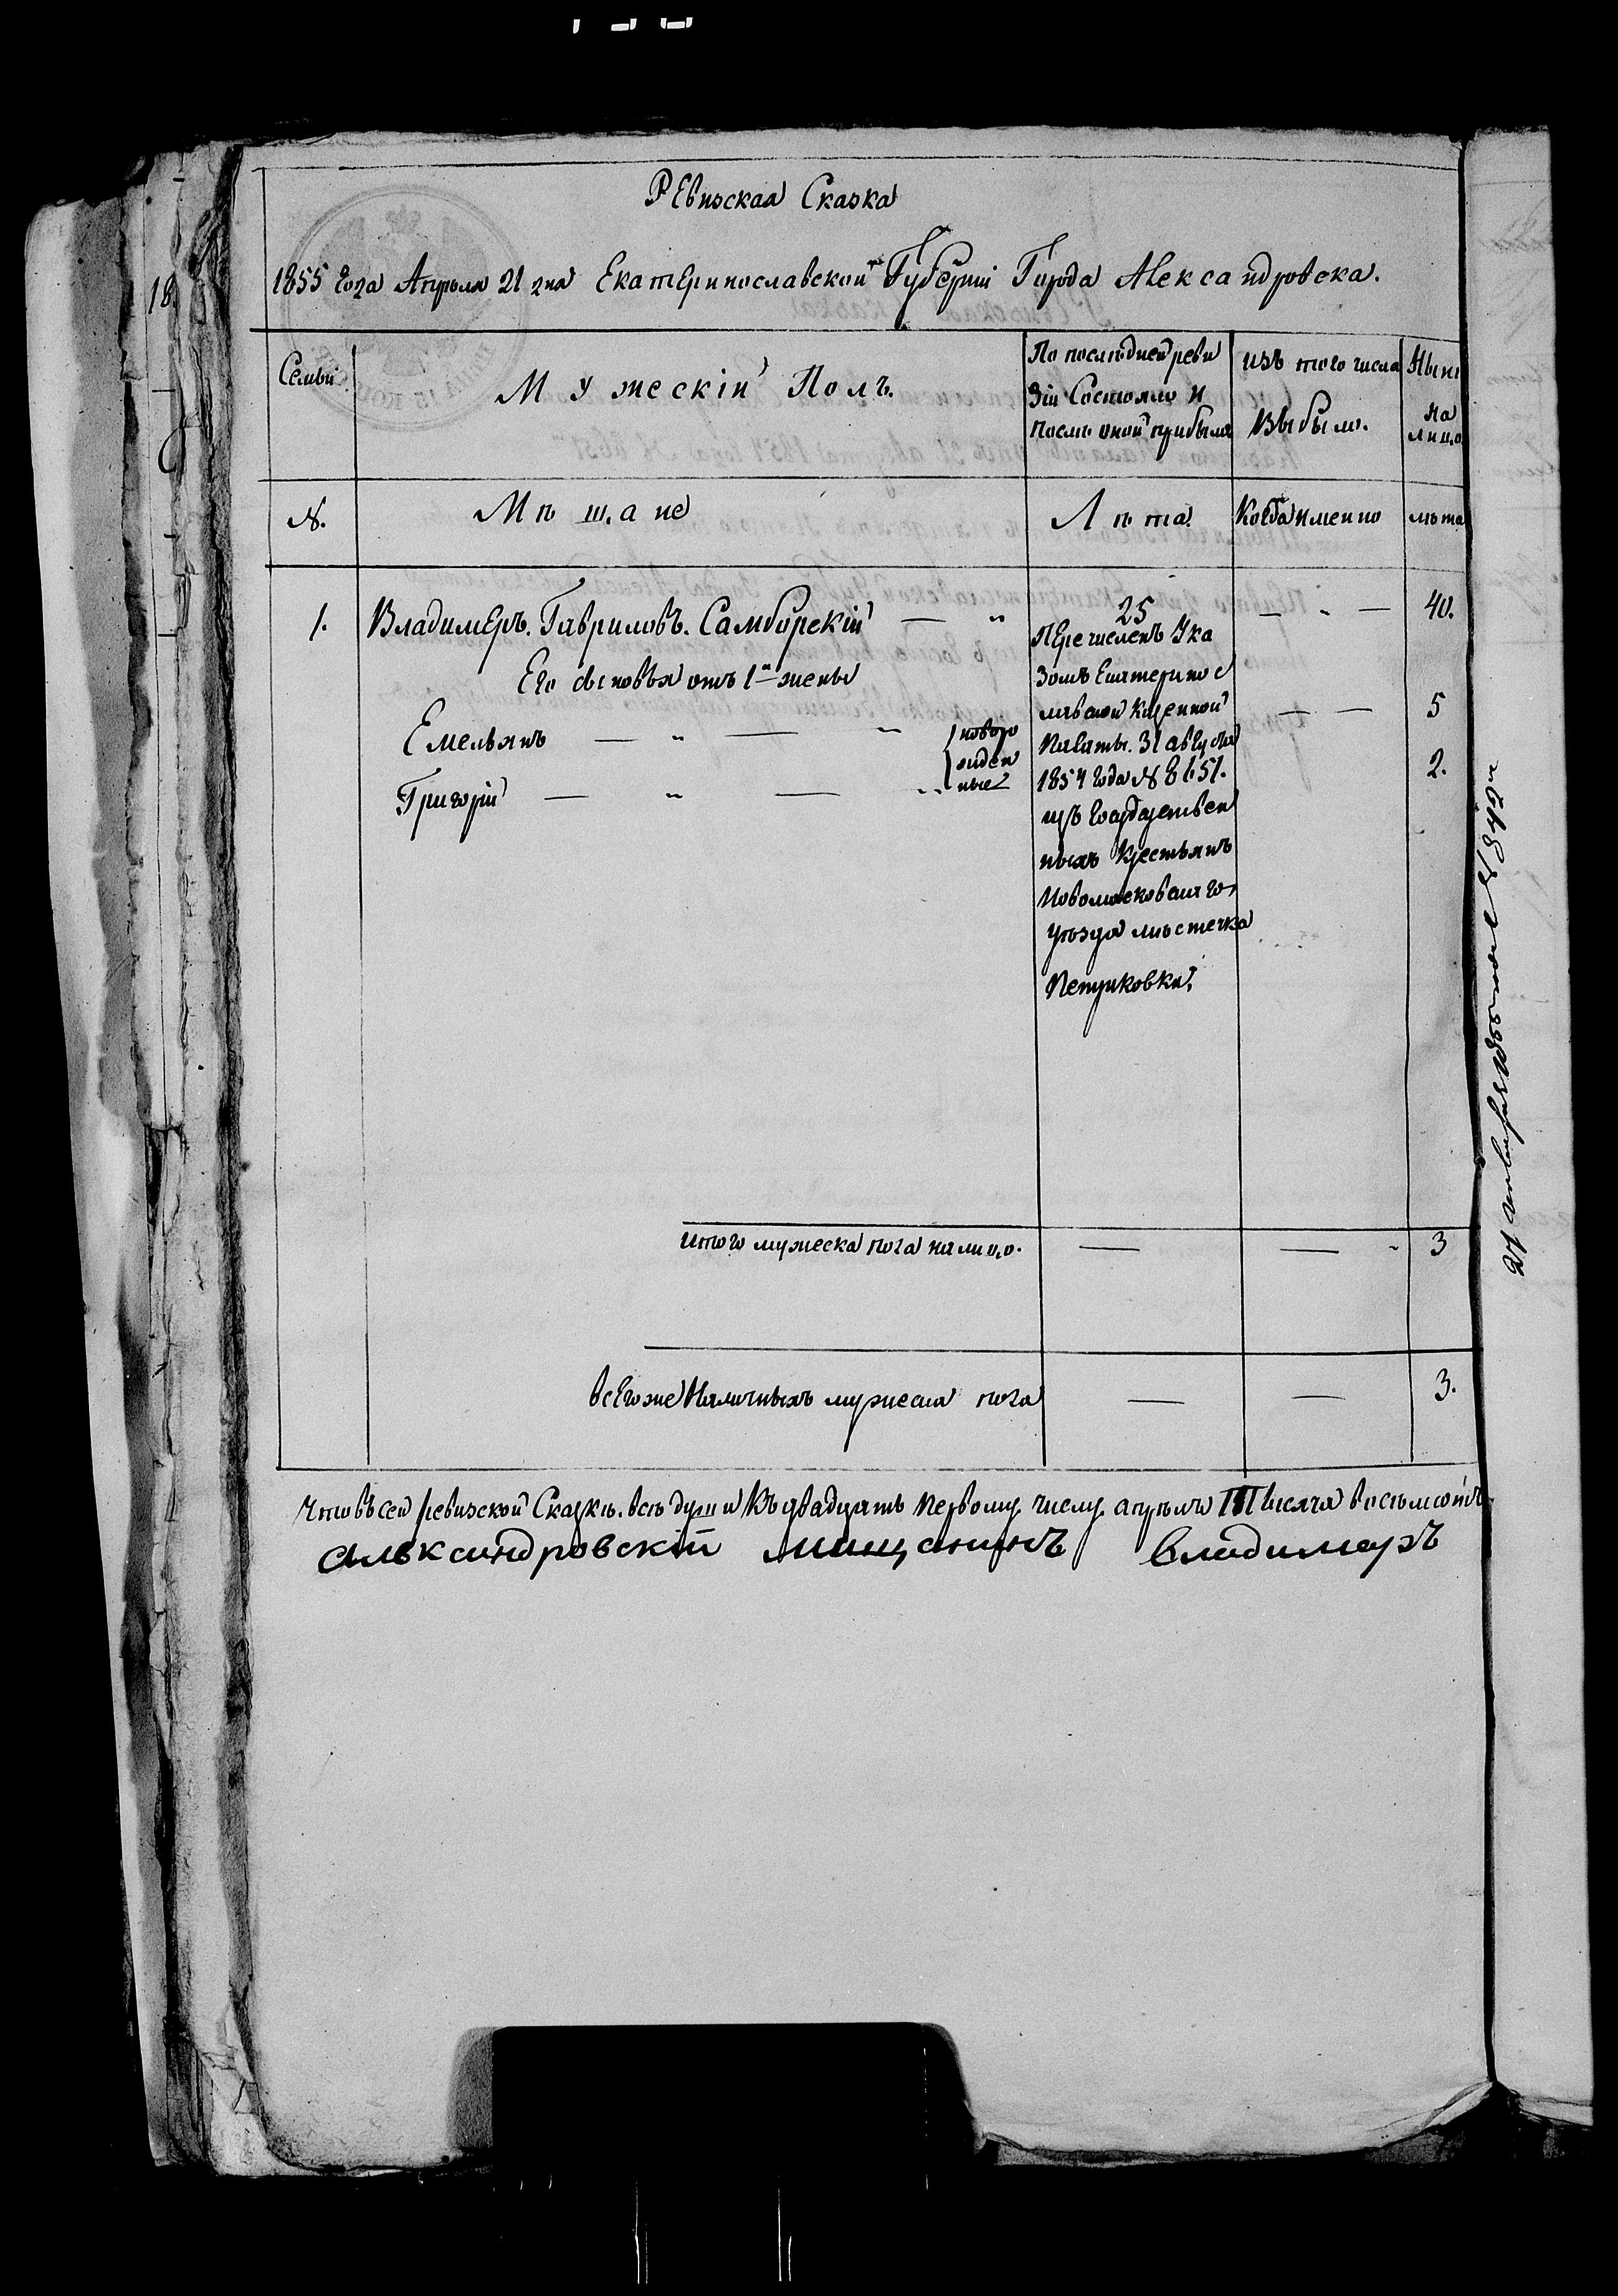 Ревизская Сказка
1855 года Апреля 21 дня Екатеринославской Губерніи Города Александровска.
Семьи
Мужескій Полъ.
По последней реви
зіи Состояло и
после оной прибыло
изъ того числа
выбыло.
Ныне
на
лицо
№.
Мѣщане
Лѣта.
Когда именно
лѣта
1. Владимеръ. Гавриловъ. Самборскій — " 25 — " — 40.
Его сыновья отъ 1й жены
Емельянъ — " — " — — 5
Григорій — " — " 2.
новоро
жден
ные
Перечисленъ Ука
зомъ Екатеринос
лавской Казенной
Палаты. 31 августа
1854 года № 8651.
изъ Государствен
ныхъ Крестьянъ
Новомосковскаго
уѣзда мѣстечка
Петриковки.
итого мужеска пола на лицо. — — 3
всего же Наличныхъ мужеска пола — — 3.
Что въ сей ревизской Сказкѣ. всѣ души Къ двадцать первому числу апрѣля Тысяча восемсотъ
александровскій мищанинъ владимеръ
18